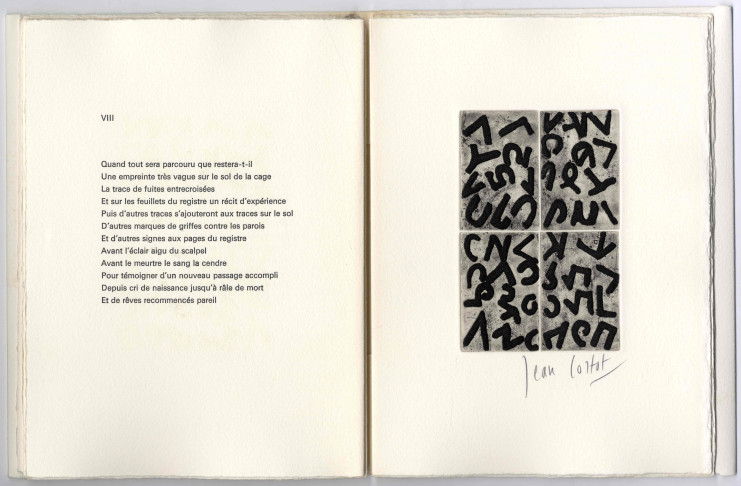 VIII
Quand tout sera parcouru que restera-t-il
Une empreinte très vague sur le sol de la cage
La trace de fuites entrecroisées
Et sur les feuillets du registre un récit d'expérience
Puis d'autres traces s'ajouteront aux traces sur le sol
D'autres marques de griffes contre les parois
Et d'autres signes aux pages du registre
Avant l'éclair aigu du scalpel
Avant le meurtre le sang la cendre
Pour témoigner d'un nouveau passage accompli
Depuis cri de naissance jusqu'à râle de mort
Et de rêves recommencés pareil
Jean Cortot